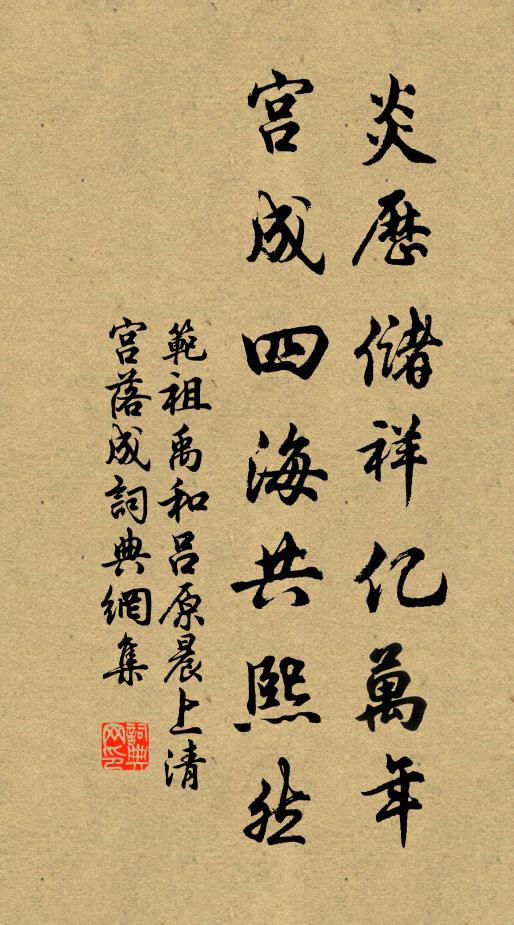 炎歷儲祥亿萬年
宫成四海共熙然
範祖禹和吕原晨上清
宫落成詞典網集
詞典网印